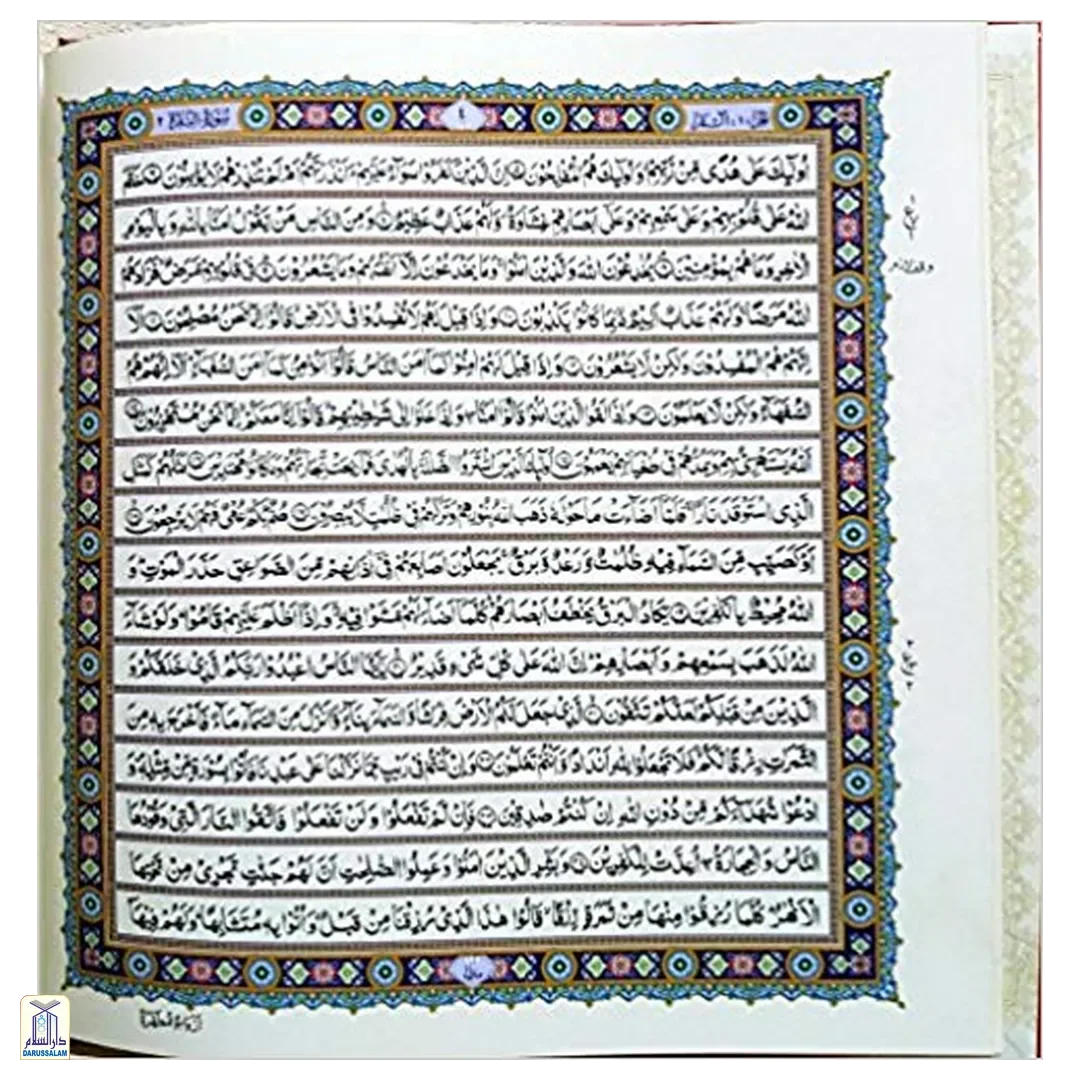 ٤
اُولٰٓئِكَ عَلٰى هُدًى مِّنْ رَّبِّهِمْ وَاُولٰٓئِكَ هُمُ الْمُفْلِحُوْنَ ۝ اِنَّ الَّذِيْنَ كَفَرُوْا سَوَآءٌ عَلَيْهِمْ ءَاَنْذَرْتَهُمْ اَمْ لَمْ تُنْذِرْهُمْ لَا يُؤْمِنُوْنَ ۝ خَتَمَ
اللّٰهُ عَلٰى قُلُوْبِهِمْ وَعَلٰى سَمْعِهِمْ وَعَلٰٓى اَبْصَارِهِمْ غِشَاوَةٌ وَّلَهُمْ عَذَابٌ عَظِيْمٌ ۝ وَمِنَ النَّاسِ مَنْ يَّقُوْلُ اٰمَنَّا بِاللّٰهِ وَبِالْيَوْمِ
الْاٰخِرِ وَمَا هُمْ بِمُؤْمِنِيْنَ ۝ يُخٰدِعُوْنَ اللّٰهَ وَالَّذِيْنَ اٰمَنُوْا وَمَا يَخْدَعُوْنَ اِلَّآ اَنْفُسَهُمْ وَمَا يَشْعُرُوْنَ ۝ فِيْ قُلُوْبِهِمْ مَّرَضٌ فَزَادَهُمُ
اللّٰهُ مَرَضًا وَلَهُمْ عَذَابٌ اَلِيْمٌ بِمَا كَانُوْا يَكْذِبُوْنَ ۝ وَاِذَا قِيْلَ لَهُمْ لَا تُفْسِدُوْا فِى الْاَرْضِ قَالُوْٓا اِنَّمَا نَحْنُ مُصْلِحُوْنَ ۝ اَلَآ
اِنَّهُمْ هُمُ الْمُفْسِدُوْنَ وَلٰكِنْ لَّا يَشْعُرُوْنَ ۝ وَاِذَا قِيْلَ لَهُمْ اٰمِنُوْا كَمَآ اٰمَنَ النَّاسُ قَالُوْٓا اَنُؤْمِنُ كَمَآ اٰمَنَ السُّفَهَآءُ اَلَآ اِنَّهُمْ هُمُ
السُّفَهَآءُ وَلٰكِنْ لَّا يَعْلَمُوْنَ ۝ وَاِذَا لَقُوا الَّذِيْنَ اٰمَنُوْا قَالُوْٓا اٰمَنَّا وَاِذَا خَلَوْا اِلٰى شَيٰطِيْنِهِمْ قَالُوْٓا اِنَّا مَعَكُمْ اِنَّمَا نَحْنُ مُسْتَهْزِءُوْنَ ۝
اَللّٰهُ يَسْتَهْزِئُ بِهِمْ وَيَمُدُّهُمْ فِيْ طُغْيَانِهِمْ يَعْمَهُوْنَ ۝ اُولٰٓئِكَ الَّذِيْنَ اشْتَرَوُا الضَّلٰلَةَ بِالْهُدٰى فَمَا رَبِحَتْ تِّجَارَتُهُمْ وَمَا كَانُوْا مُهْتَدِيْنَ ۝ مَثَلُهُمْ كَمَثَلِ
الَّذِى اسْتَوْقَدَ نَارًا فَلَمَّآ اَضَآءَتْ مَا حَوْلَهٗ ذَهَبَ اللّٰهُ بِنُوْرِهِمْ وَتَرَكَهُمْ فِيْ ظُلُمٰتٍ لَّا يُبْصِرُوْنَ ۝ صُمٌّۢ بُكْمٌ عُمْيٌ فَهُمْ لَا يَرْجِعُوْنَ ۝
اَوْ كَصَيِّبٍ مِّنَ السَّمَآءِ فِيْهِ ظُلُمٰتٌ وَّرَعْدٌ وَّبَرْقٌ يَجْعَلُوْنَ اَصَابِعَهُمْ فِيْٓ اٰذَانِهِمْ مِّنَ الصَّوَاعِقِ حَذَرَ الْمَوْتِ وَ
اللّٰهُ مُحِيْطٌۢ بِالْكٰفِرِيْنَ ۝ يَكَادُ الْبَرْقُ يَخْطَفُ اَبْصَارَهُمْ كُلَّمَآ اَضَآءَ لَهُمْ مَّشَوْا فِيْهِ وَاِذَآ اَظْلَمَ عَلَيْهِمْ قَامُوْا وَلَوْ شَآءَ
اللّٰهُ لَذَهَبَ بِسَمْعِهِمْ وَاَبْصَارِهِمْ اِنَّ اللّٰهَ عَلٰى كُلِّ شَيْءٍ قَدِيْرٌ ۝ يٰٓاَيُّهَا النَّاسُ اعْبُدُوْا رَبَّكُمُ الَّذِيْ خَلَقَكُمْ وَ
الَّذِيْنَ مِنْ قَبْلِكُمْ لَعَلَّكُمْ تَتَّقُوْنَ ۝ الَّذِيْ جَعَلَ لَكُمُ الْاَرْضَ فِرَاشًا وَّالسَّمَآءَ بِنَآءً وَّاَنْزَلَ مِنَ السَّمَآءِ مَآءً فَاَخْرَجَ بِهٖ مِنَ
الثَّمَرٰتِ رِزْقًا لَّكُمْ فَلَا تَجْعَلُوْا لِلّٰهِ اَنْدَادًا وَّاَنْتُمْ تَعْلَمُوْنَ ۝ وَاِنْ كُنْتُمْ فِيْ رَيْبٍ مِّمَّا نَزَّلْنَا عَلٰى عَبْدِنَا فَاْتُوْا بِسُوْرَةٍ مِّنْ مِّثْلِهٖ وَ
ادْعُوْا شُهَدَآءَكُمْ مِّنْ دُوْنِ اللّٰهِ اِنْ كُنْتُمْ صٰدِقِيْنَ ۝ فَاِنْ لَّمْ تَفْعَلُوْا وَلَنْ تَفْعَلُوْا فَاتَّقُوا النَّارَ الَّتِيْ وَقُوْدُهَا
النَّاسُ وَالْحِجَارَةُ اُعِدَّتْ لِلْكٰفِرِيْنَ ۝ وَبَشِّرِ الَّذِيْنَ اٰمَنُوْا وَعَمِلُوا الصّٰلِحٰتِ اَنَّ لَهُمْ جَنّٰتٍ تَجْرِيْ مِنْ تَحْتِهَا
الْاَنْهٰرُ كُلَّمَا رُزِقُوْا مِنْهَا مِنْ ثَمَرَةٍ رِّزْقًا قَالُوْا هٰذَا الَّذِيْ رُزِقْنَا مِنْ قَبْلُ وَاُتُوْا بِهٖ مُتَشَابِهًا وَلَهُمْ فِيْهَا
دارالسلام
DARUSSALAM